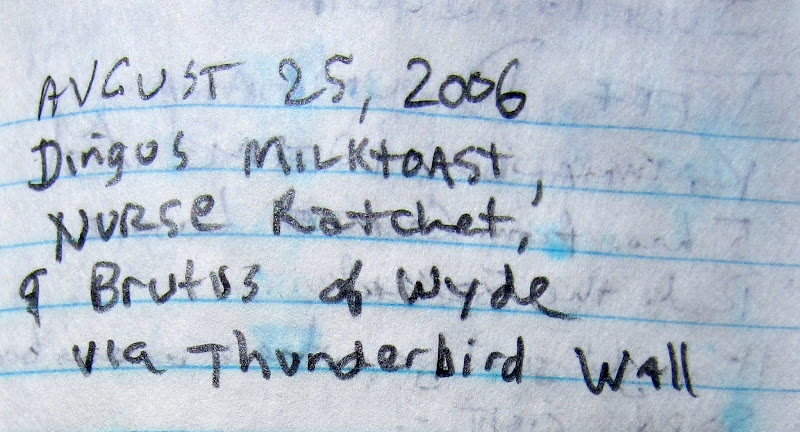 AUGUST 25, 2006
Dingus MILKtOAST,
NURSE Ratchet,
& Brutus of Wyde
via Thunderbird Wall